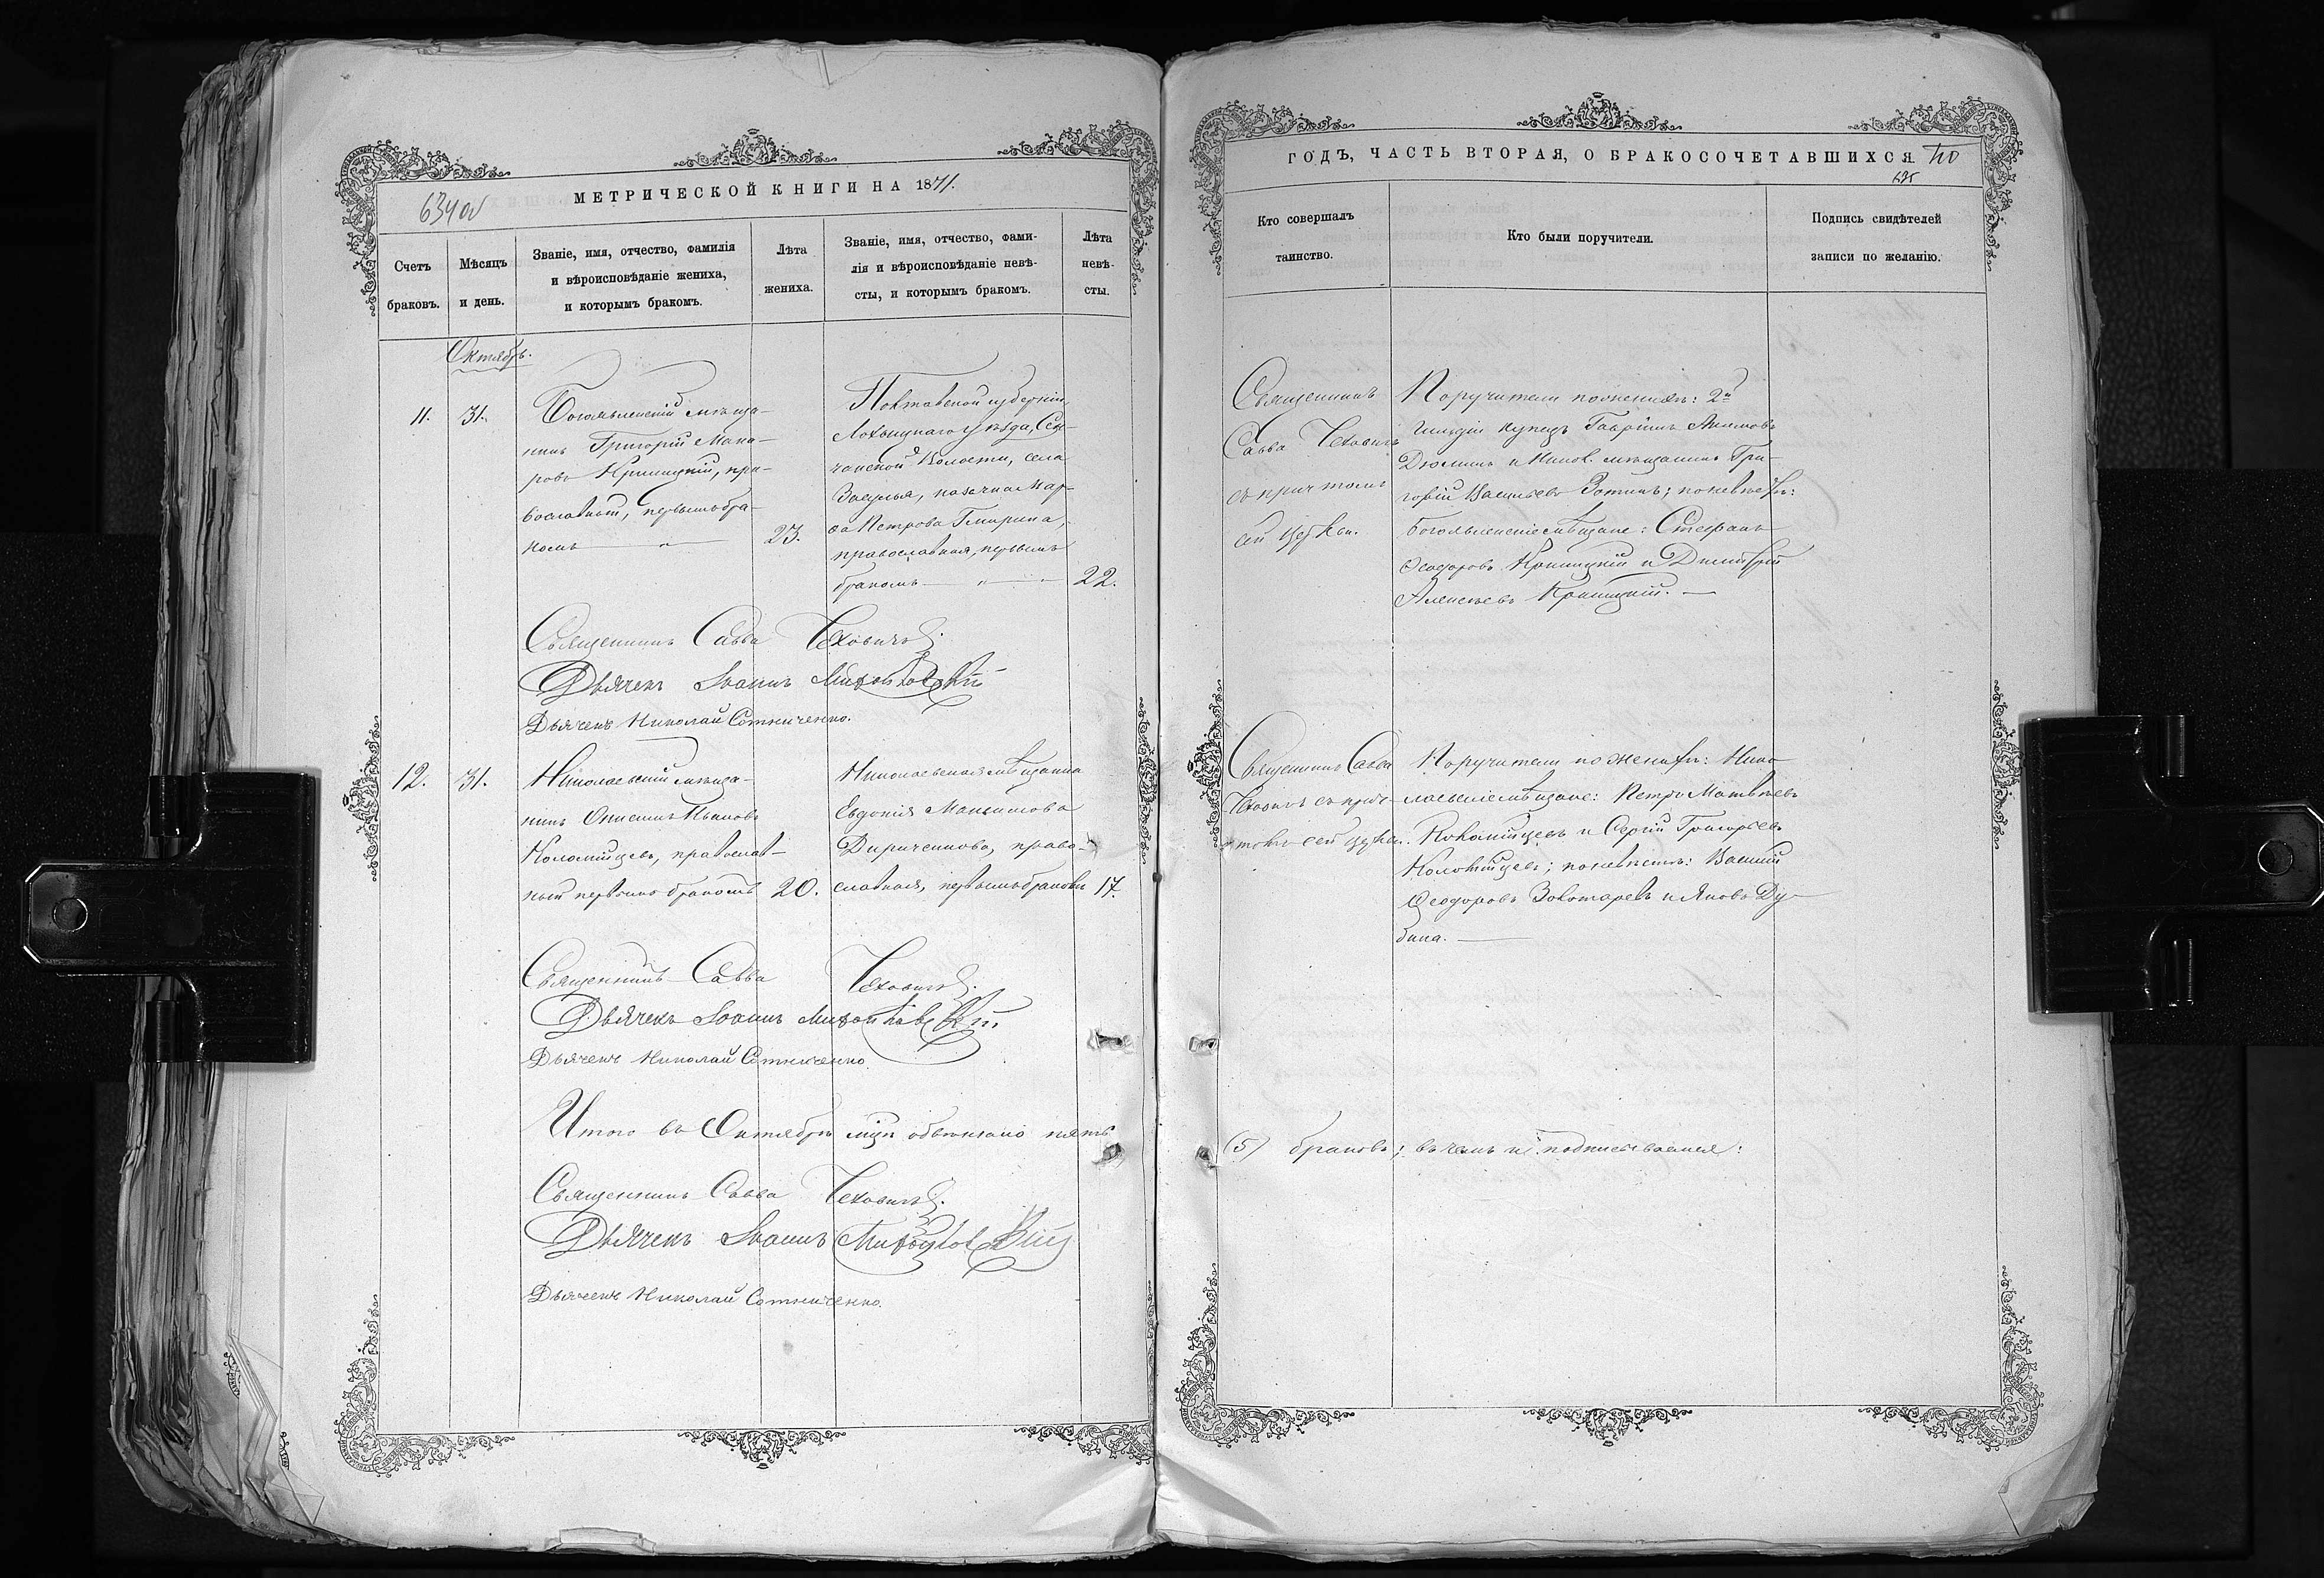 МЕТРИЧЕСКОЙ КНИГИ НА 1871.
634об
Счетъ браковъ.
Мѣсяцъ и день.
Званіе, имя, отчество, фамилія
и вѣроисповѣданіе жениха,
и которымъ бракомъ.
Лѣта
жениха.
Званіе, имя, отчество, фами-
лія и вѣроисповѣданіе невѣ-
сты, и которымъ бракомъ.
Лѣта
невѣ-
сты.
Октябрь.
11.
31.
Богоявленскій мѣща-
нинъ Григорій Мака-
ровъ Криницкій, пра-
вославный, первымъ бра-
комъ
23.
Полтавской губерніи,
Лохвицкаго уѣзда, Сен-
чанской Волости, села
Засулья, казачка Мар-
ѳа Петрова Гмирина,
православная, первымъ
бракомъ
22.
Священникъ Савва Чеховичъ.
Дьячекъ Іоаннъ
Дьячекъ Николай Сотниченко.
12.
31.
Николаевскій мѣща-
нинъ Онисимъ Ивановъ
Коломійцевъ, православ-
ный первымъ бракомъ
20.
Николаевская мѣщанка
Евдокія Максимова
Дириченкова, право-
славная, первымъ бракомъ
17.
Священникъ Савва Чеховичъ.
Дьячекъ Іоаннъ
Дьячекъ Николай Сотниченко.
Итого въ Октябрѣ мцѣ обвѣнчано пять
Священникъ Савва Чеховичъ.
Дьячекъ Іоаннъ
Дьячекъ Николай Сотниченко.
ГОДЪ, ЧАСТЬ ВТОРАЯ, О БРАКОСОЧЕТАВШИХСЯ.
635
Кто совершалъ
таинство.
Кто были поручители.
Подпись свидѣтелей
записи по желанію.
Священникъ
Савва Чеховичъ
съ причтомъ
сей церкви.
Поручители по женихѣ: 2й
гильдіи купецъ Гавріилъ Акимовъ
Дюминъ и Никол. мѣщанинъ Гри-
горій Васильевъ Зотинъ; по невѣстѣ:
Богоявленскіе мѣщане: Стефанъ
Ѳеодоровъ Криницкій и Димитрій
Алексѣевъ Криницкій.
Священникъ Савва
Чеховичъ съ прич-
томъ сей церкви.
Поручители по женихѣ: Нико-
лаевскіе мѣщане: Петръ Матвѣевъ
Коломійцевъ и Сергій Григорьевъ
Коломійцевъ; по невѣстѣ: Василій
Ѳеодоровъ Золотаревъ и Яковъ Ду-
бина.
(5) браковъ; въ чемъ и подписываемся: